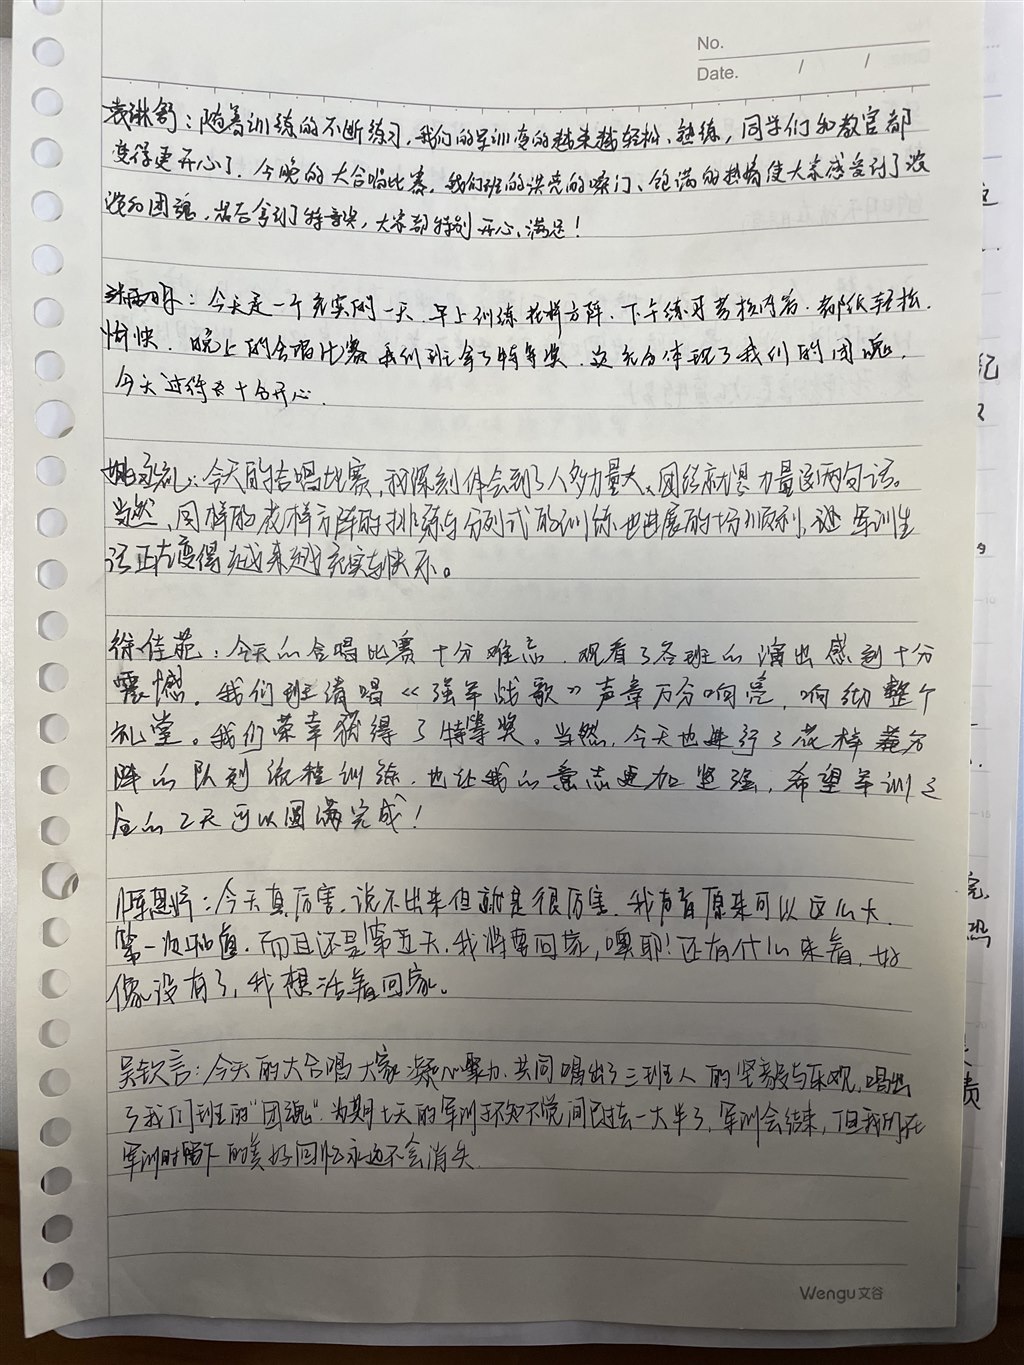 No.
Date. / /
袁琳舒：随着训练的不断练习，我们的军训变的越来越轻松、熟练，同学们和教官都
变得更开心了．今晚的大合唱比赛，我们班的洪亮的嗓门、饱满的热情使大家感受到了浓
浓的团魂，最后拿到了特等奖，大家都特别开心、满足！
今天是一个充实的一天．早上训练花样方阵．下午练习考核内容．都很轻松．
愉快．晚上的合唱比赛我们班拿了特等奖．这充分体现了我们的团魂．
今天过得十分开心．
今天的合唱比赛，我深刻体会到了人多力量大、团结就是力量这两句话。
当然，同样的花样方阵的排练与分列式的训练也进展的十分顺利，军训生
活正在变得越来越充实与快乐。
徐佳苑：今天的合唱比赛十分难忘．观看了各班的演出感到十分
震撼．我们班清唱《强军战歌》声音万分响亮，响彻整个
礼堂。我们荣幸获得了特等奖。当然，今天也进行了花样方
阵的队列流程训练．也让我的意志更加坚强，希望军训
的2天可以圆满完成！
陈恩婷：今天真厉害．说不出来但就是很厉害．我声音原来可以这么大．
第一次知道．而且还是第五天．我将要回家，噢耶！还有什么来着．好
像没有了，我想活着回家。
吴钦言：今天的大合唱大家凝心聚力．共同唱出了三班人的坚毅与乐观，唱出
了我们班的“团魂”．为期七天的军训不知不觉间已过去一大半了，军训会结束，但我们在
军训时留下的美好回忆永远不会消失．
Wengu 文谷